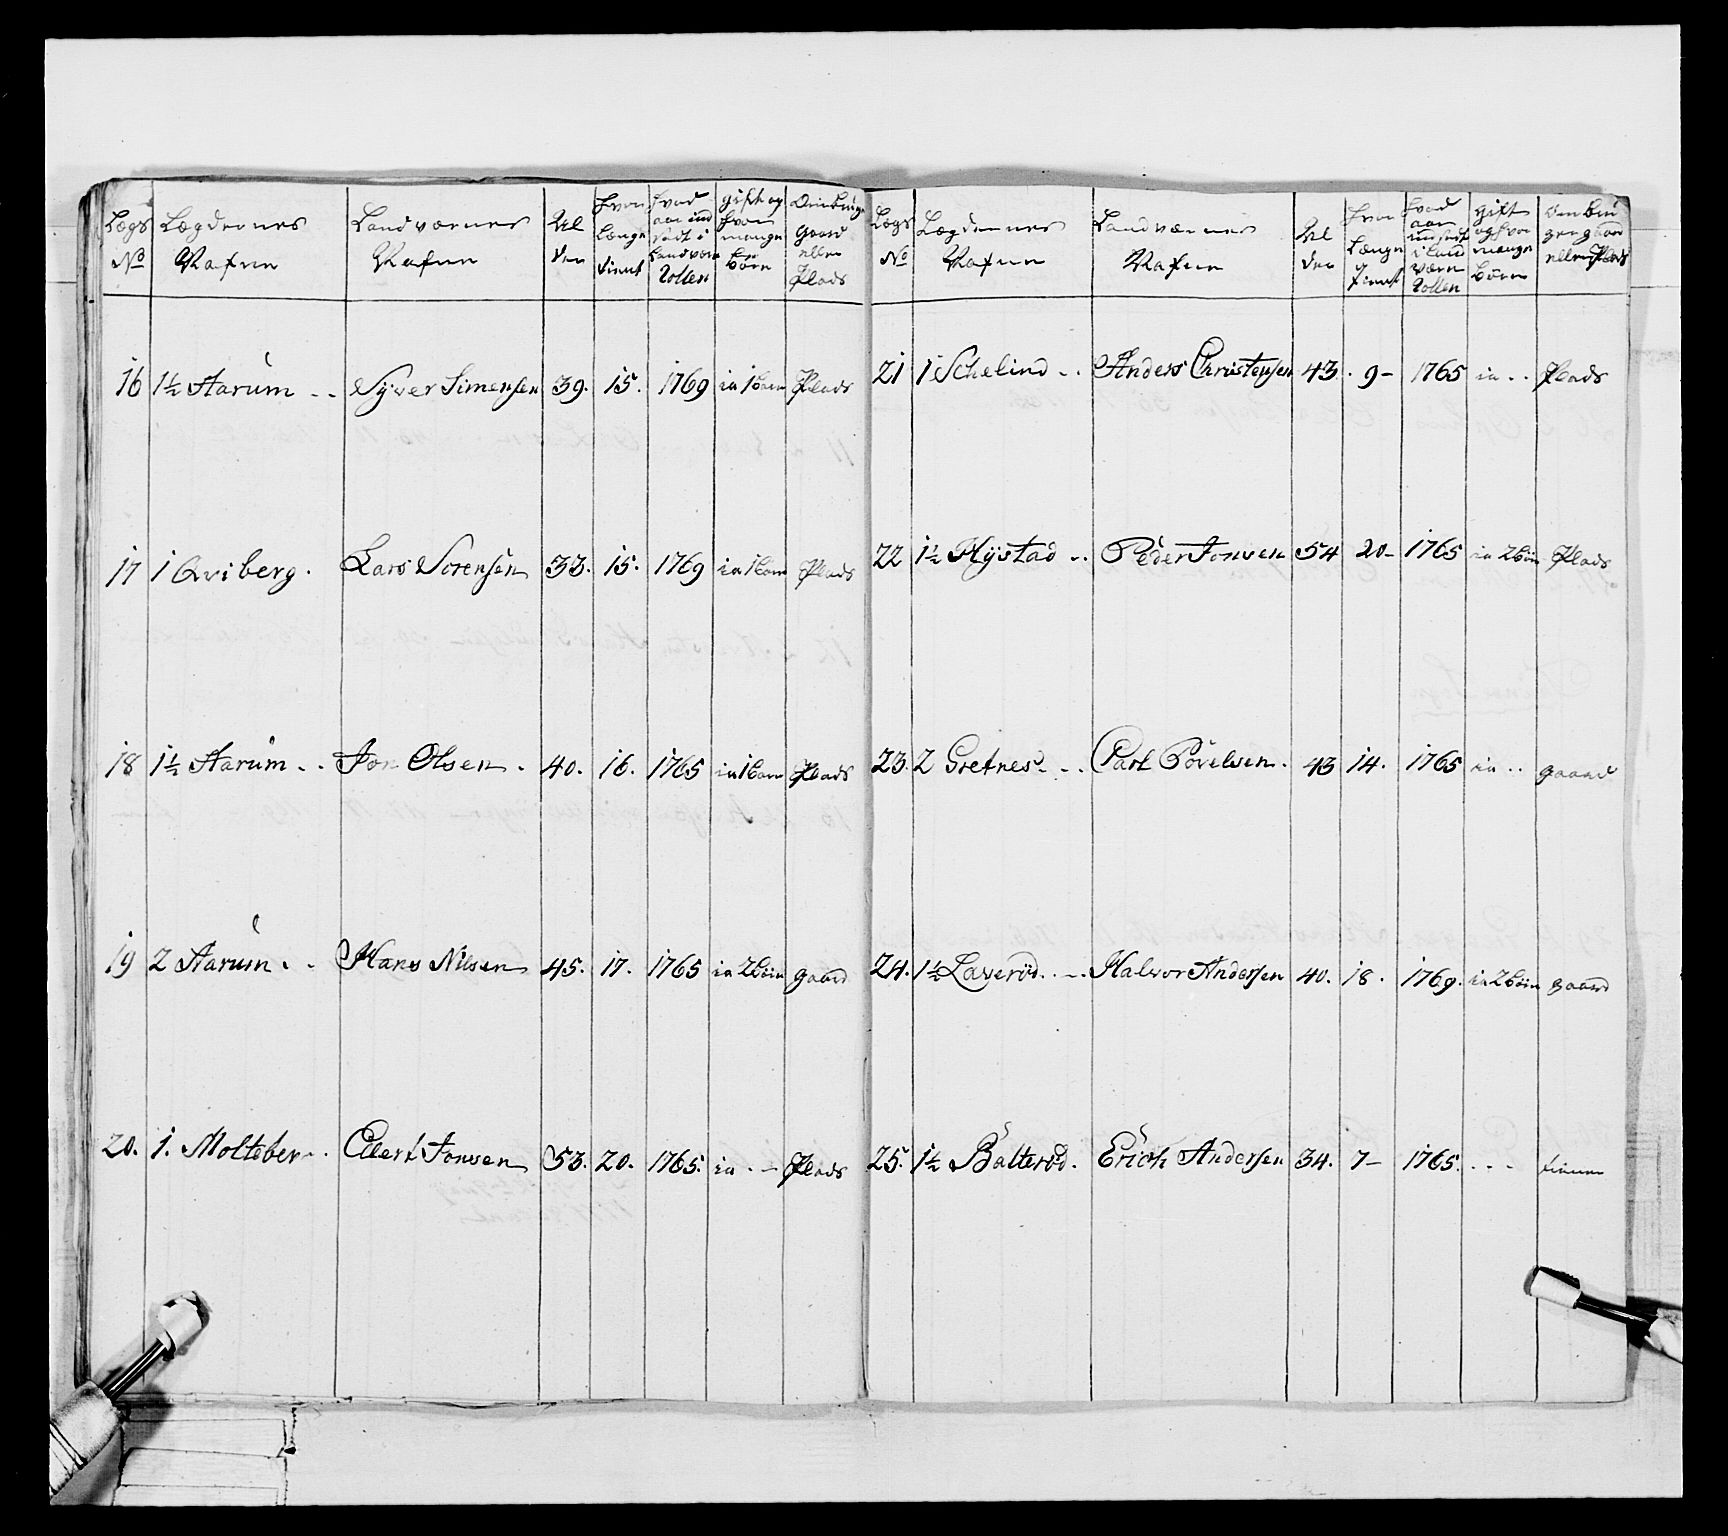 Lægs No | Lægdernes Nafne | Landværnes Nafne | Alder | hvor Længe tient | hvad aar indsadt i Landværn Rollen | gift og hvor mange børn | Om bruger gaard eller Plads
16 | 1½ Aarum | Syver Simensen | 39. | 15. | 1769 | ia 1 barn | Plads
17 | 1 Qviberg. | Lars Sörensen | 33. | 15. | 1769 | ia 1 barn | Plads
18 | 1½ Aarum | Jon Olsen. | 40. | 16. | 1765 | ia 1 barn | Plads
19 | 2 Aarum. | Hans Nilsen | 45. | 17. | 1765 | ia 2 börn | gaard
20. | 1. Molteber | Elert Jonsen | 53. | 20. | 1765. | ia | Plads
Lægs No | Lægdernes Nafne | Landværnes Nafne | Alder | hvor Længe tient | hvad aar indsadt i Land værn Rollen | Gift og hvor mange børn | Om bruger gaard eller Plads
21 | 1 Schelind | Anders Christensen | 43. | 9- | 1765 | ia | Plads
22 | 1½ Nÿstad | Peder Jonsen | 54 | 20- | 1765 | ia 2 börn | Plads
23. | 2 Gretnes. | Carl Povelsen. | 43 | 14. | 1765 | ia | gaard
24. | 1½ Laveröd. | Halvor Andersen | 40. | 18. | 1769. | ia 2 börn | gaard
25. | 1½ Balteröd. | Erich Andersen | 34. | 7- | 1765. | - - - | tiener